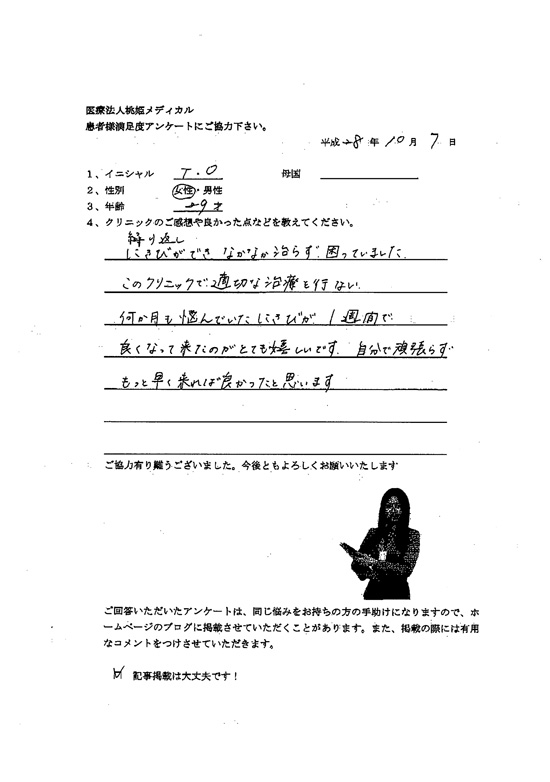 医療法人桃姫メディカル
患者様満足度アンケートにご協力下さい。
平成 28 年 10 月 7 日
1、イニシャル T.O 母国
2、性別 女性・男性
3、年齢 29才
4、クリニックのご感想や良かった点などを教えてください。
繰り返し
にきびができ なかなか治らず 困っていました
このクリニックで 適切な治療を行ない
何か月も悩んでいたにきびが 1週間で
良くなって来たのがとても嬉しいです. 自分で頑張らず
もっと早く来れば良かったと思います
ご協力有り難うございました。今後ともよろしくお願いいたします
ご回答いただいたアンケートは、同じ悩みをお持ちの方の手助けになりますので、ホ
ームページのブログに掲載させていただくことがあります。また、掲載の際には有用
なコメントをつけさせていただきます。
記事掲載は大丈夫です！